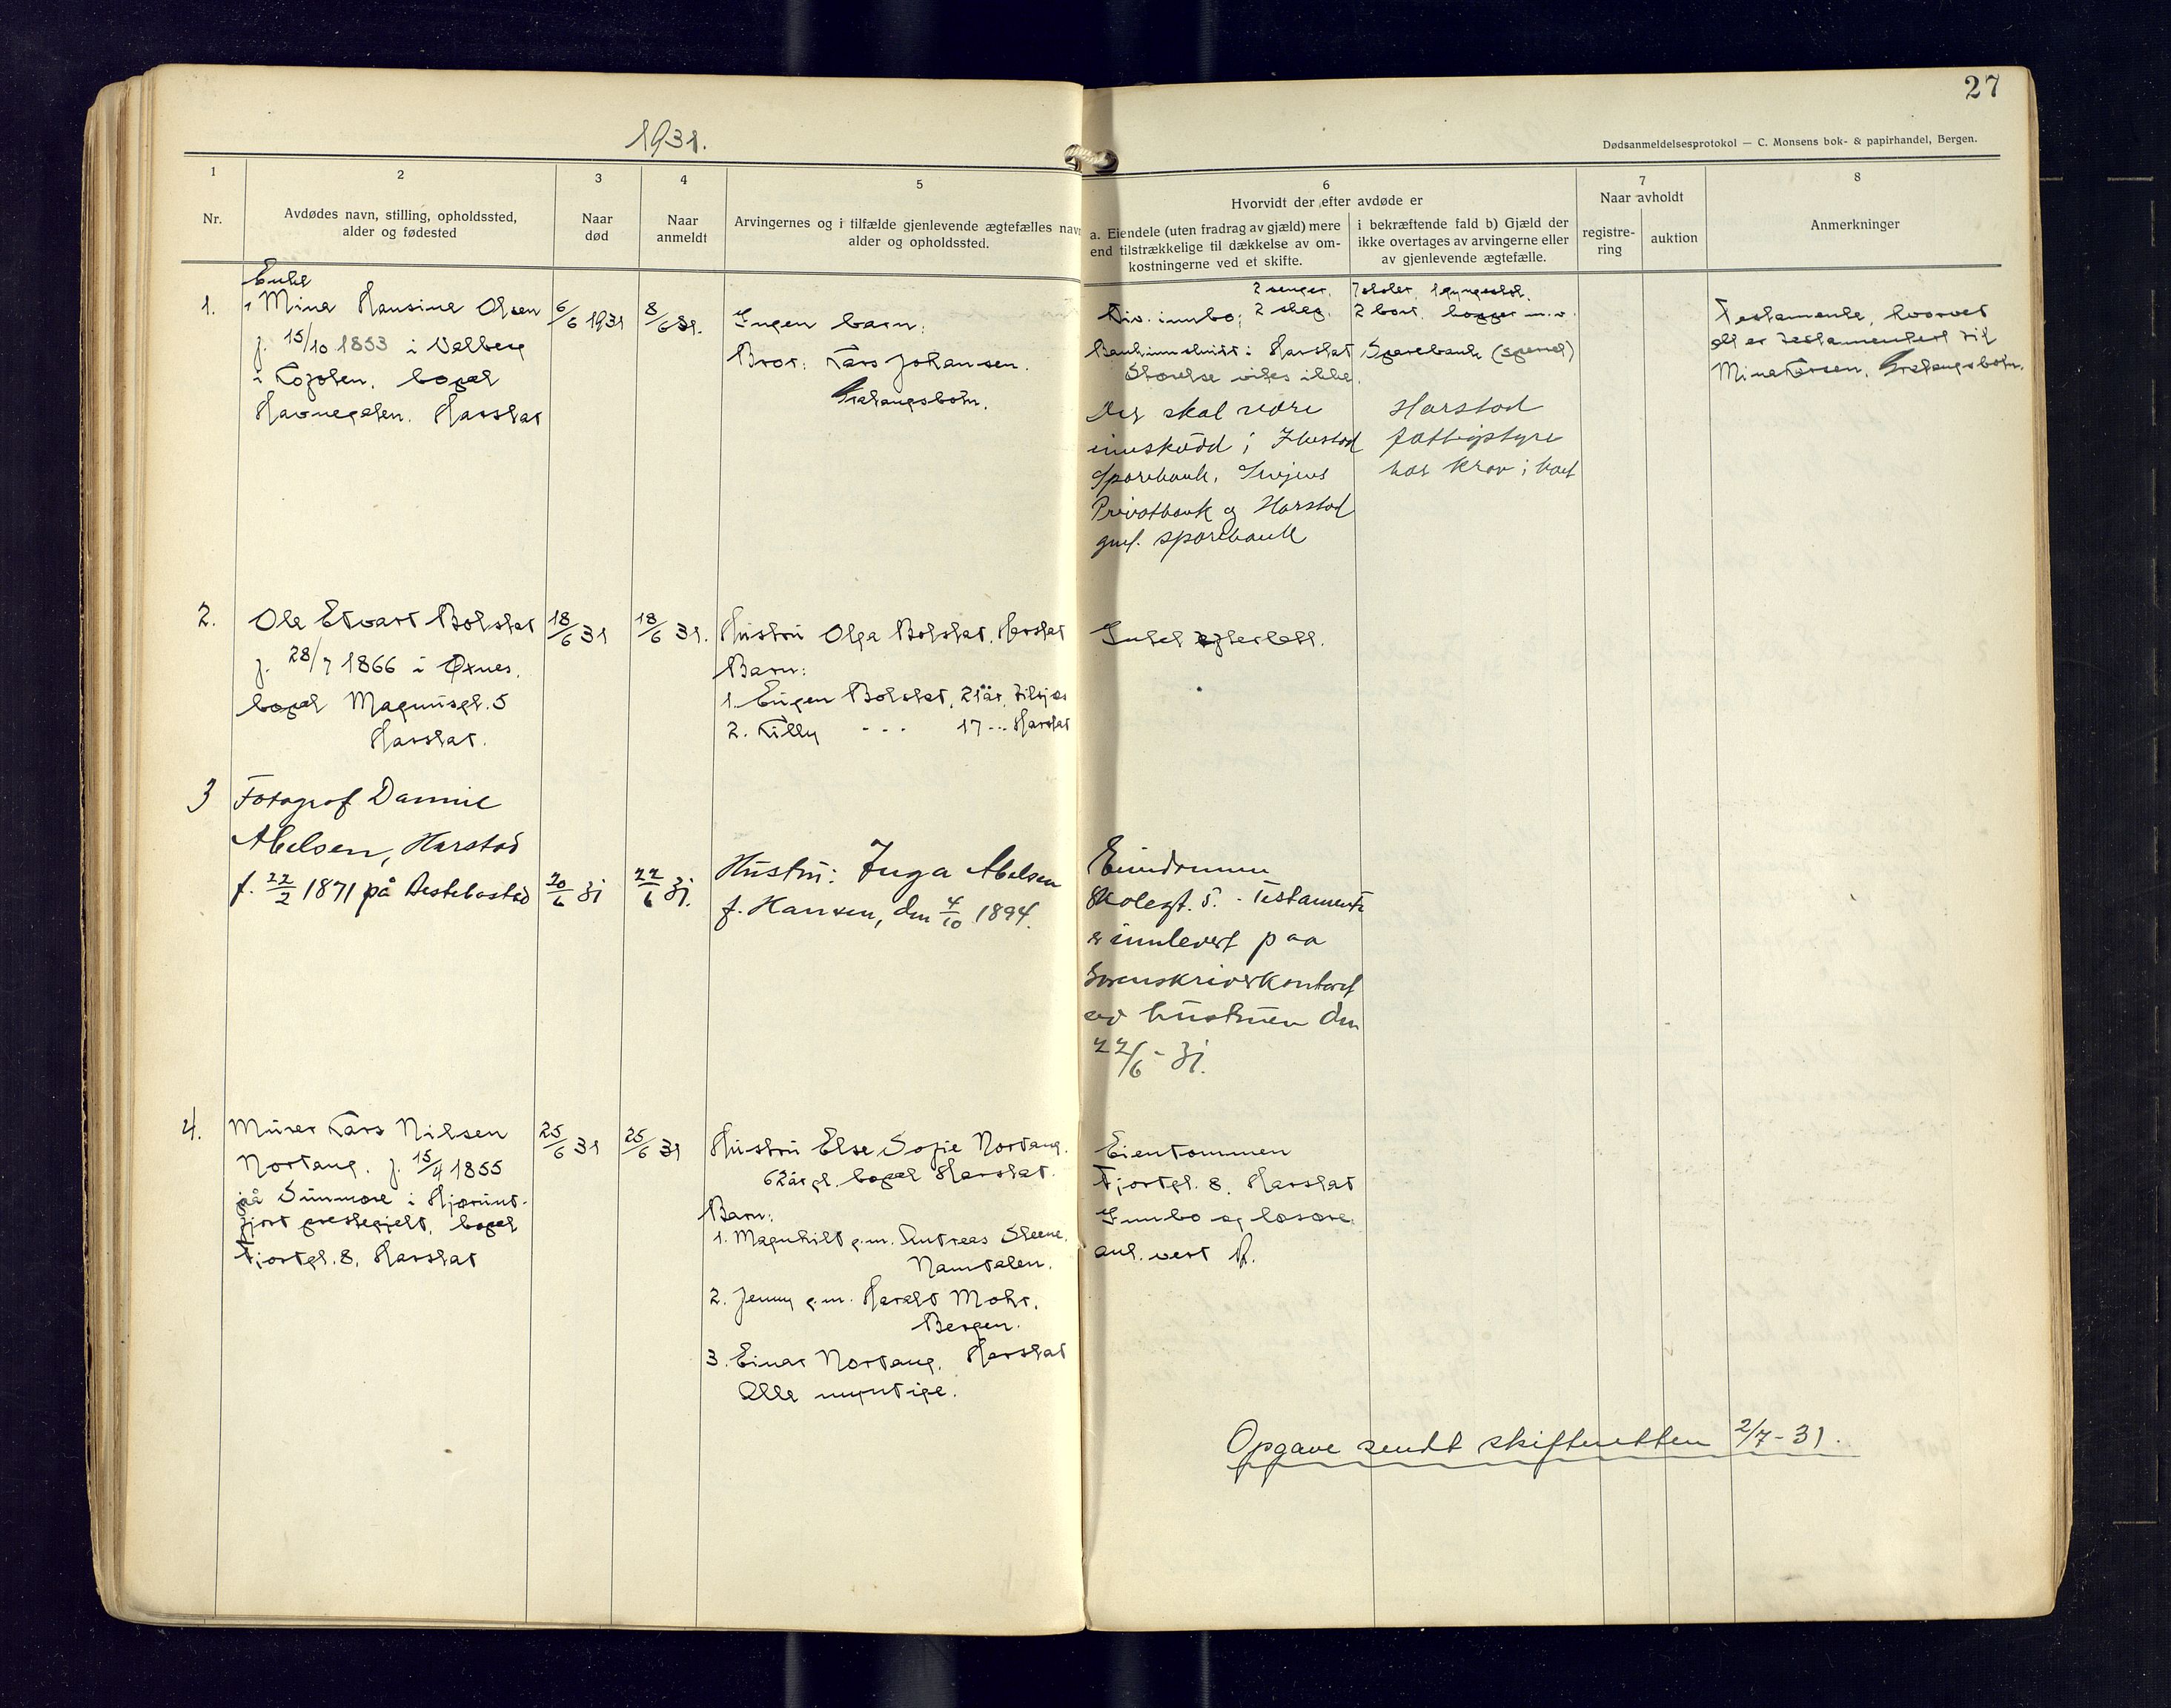 27
1931.
Dødsanmeldelsesprotokol — C. Monsens bok- & papirhandel, Bergen.
1
Nr.
2
Avdødes navn, stilling, opholdssted,
alder og fødested
3
Naar
død
4
Naar
anmeldt
5
Arvingernes og i tilfælde gjenlevende ægtefælles navn
alder og opholdssted.
6
Hvorvidt der efter avdøde er
a. Eiendele (uten fradrag av gjæld) mere
end tilstrækkelige til dækkelse av om-
kostningerne ved et skifte.
i bekræftende fald b) Gjæld der
ikke overtages av arvingerne eller
av gjenlevende ægtefælle.
7
Naar avholdt
registre-
ring
auktion
8
Anmerkninger
Enke
1. Mina Hansine Olsen
f. 15/10 1853 i
i Lofoten, bopel
Havnegaten, Harstad
6/6 1931
8/6 31.
Ingen barn:
Bror: Lars Johansen.
Gratangsbotn.
2 senger, 7 stoler, 1 gyngestol.
Div. innbo; 2 skap, 2 bord, m.v.
Bankinnskudd i Harstad Sparebank (sperret)
Størelse vites ikke.
Der skal være
innskudd i Harstad
Sparebank, Senjens
Privatbank og Harstad
gml. sparebank
Harstad
fattigstyre
har krav i boet
Testamente, hvorved
alt er testamentert til
Mina Larsen, Gratangsbotn.
2. Ole Edvart Bolstad
f. 28/7 1866 i Øxnes,
bopel Magnusgt. 5
Harstad.
18/6 31
18/6 31.
Hustru Olga Bolstad, Harstad
Barn:
1. Eugen Bolstad, 21 år, tilsjøs
2. Lilly - - - 17 -.- Harstad
Intet efterlatt.
3 Fotograf Daniel
Abelsen, Harstad
f. 22/2 1871 på Hestebostad
20/6 31
22/6 31.
Hustru: Inga Abelsen
f. Hansen, den 4/10 1894.
Eiendommen
Skolegt. 5. - Testamente
er innlevert paa
Sorenskriverkontoret
av hustruen den
22/6 - 31.
4. Murer Lars Nilsen
Nordang. f. 15/4 1855
på Sunnmøre i Hjørund-
fjord prestegjeld, bopel
Fjordgt. 8, Harstad
25/6 31
25/6 31
Hustru Else Sofie Nordang.
62 år gl. bopel Harstad.
Barn:
1. Magnhild g.m. Andreas Steene,
Namdalen.
2. Jenny g.m. Harald Mohr,
Bergen.
3. Einar Nordang, Harstad
Alle myndige.
Eiendommen
Fjordgt. 8, Harstad
Innbo og løsøre,
anl. verd kr.
Opgave sendt skifteretten 2/7 - 31.